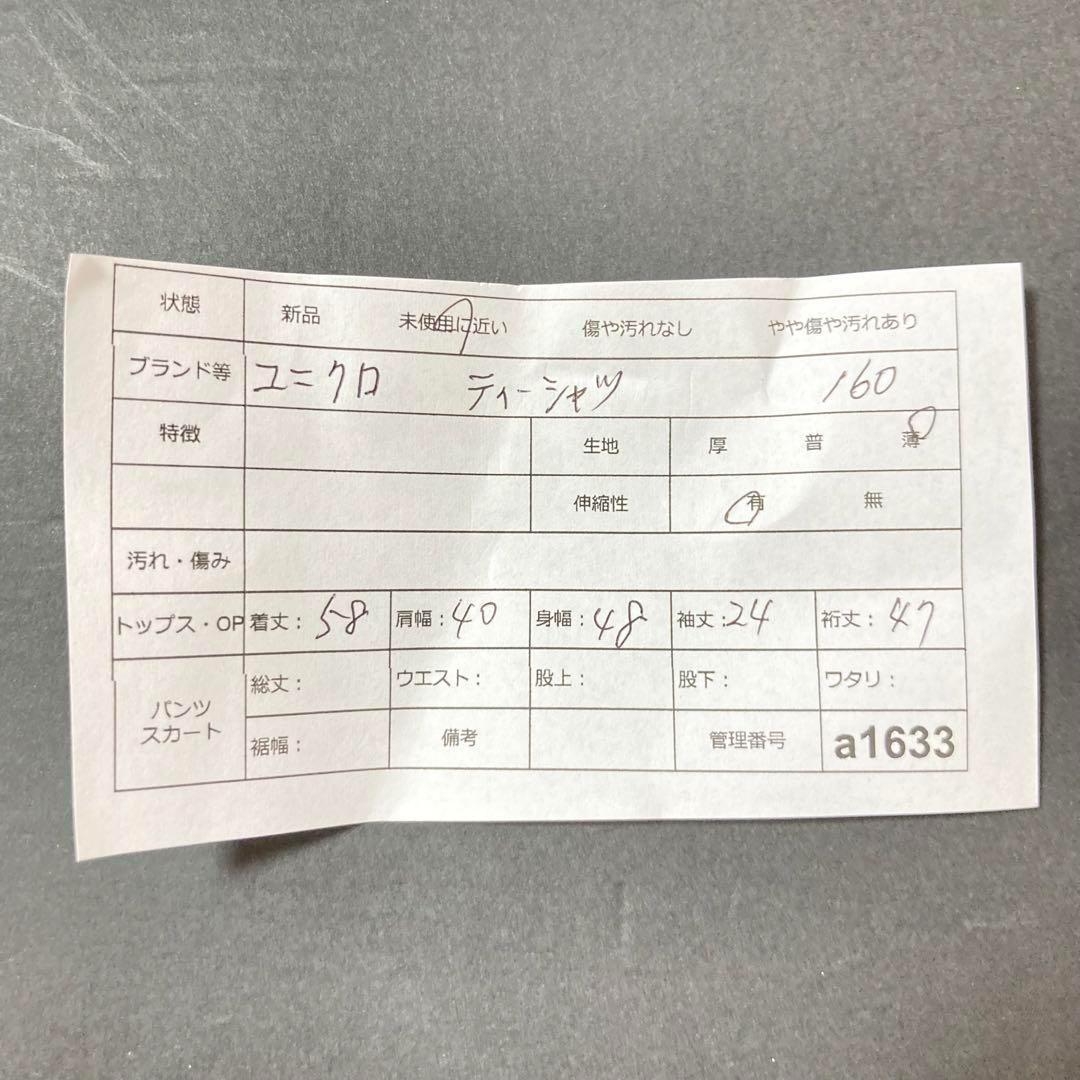 状態 新品 未使用に近い 傷や汚れなし やや傷や汚れあり
ブランド等 ユニクロ ティーシャツ 160
特徴 生地 厚 普 薄
伸縮性 有 無
汚れ・傷み
トップス・OP 着丈:58 肩幅:40 身幅:48 袖丈:24 裄丈:47
パンツ スカート 総丈: ウエスト: 股上: 股下: ワタリ:
裾幅: 備考 管理番号 a1633